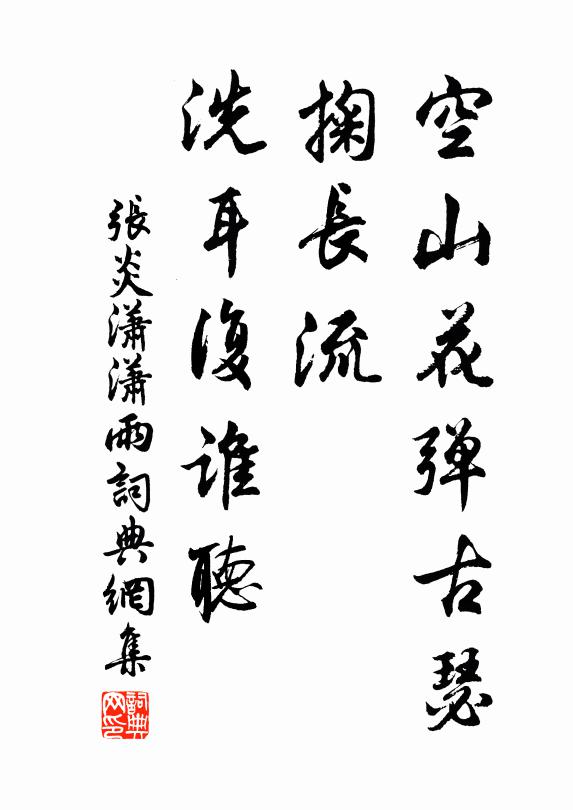 空山花弹古瑟
掬長流
洗耳復誰聽
張炎瀟瀟雨詞典網集
詞典網印